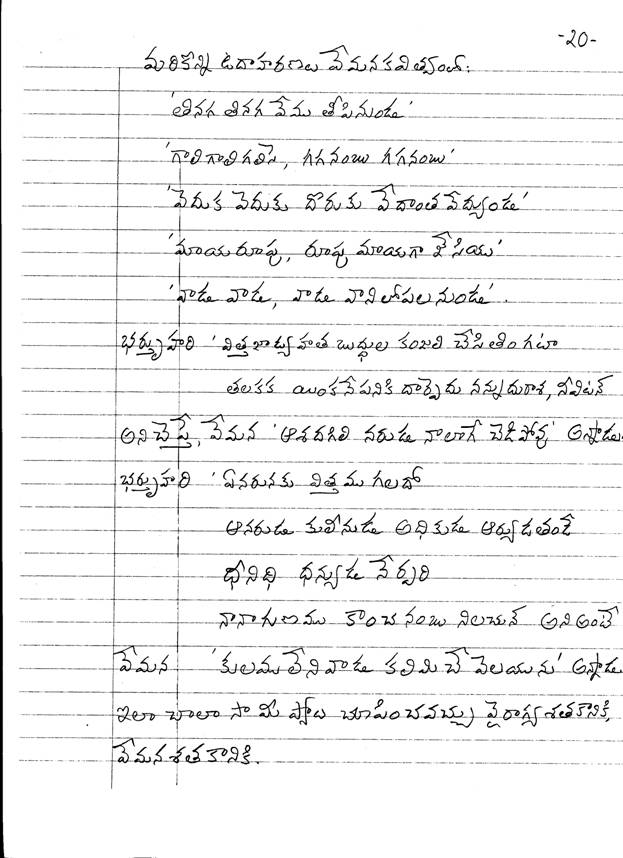 -20-
మరికొన్ని ఉదాహరణలు వేమనకవిత్వంలో:
'తినగ తినగ వేము తీపినుండు'
'గాలిగాలిగలసె, గగనంబు గగనంబు'
'వెదుక వెదుకు దొరుకు వేదాంతవేద్యుండు'
'మాయరూపు, రూపు మాయగా జేసియు'
'వాడు వాడు, వాడు వానిలోపలనుండు'.
భర్తృహరి 'విత్తజాడ్యహత బుద్ధుల కంజలి చేసితింగటా
తలకక యింకనేపనికి దార్పెదు నన్ను దురాశ, నీవిటన్
అని చెప్తే, వేమన 'ఆశదగిలి నరుడు నాలాగే చెడిపోవ' అన్నాడు.
భర్తృహరి 'ఏనరునకు విత్తము గలదో
ఆనరుడు కులీనుడు అధికుడు ఆర్యుడతండే
ధీనిధి ధన్యుడు నేర్పరి
నానాగుణము కాంచనంబు నిలచున్ అని అంటే
వేమన 'కులములేనివాడు కలిమిచే వెలయును' అన్నాడు
ఇలా చాలా సామీప్యాలు చూపించవచ్చు వైరాగ్యశతకానికి,
వేమనశతకానికి.